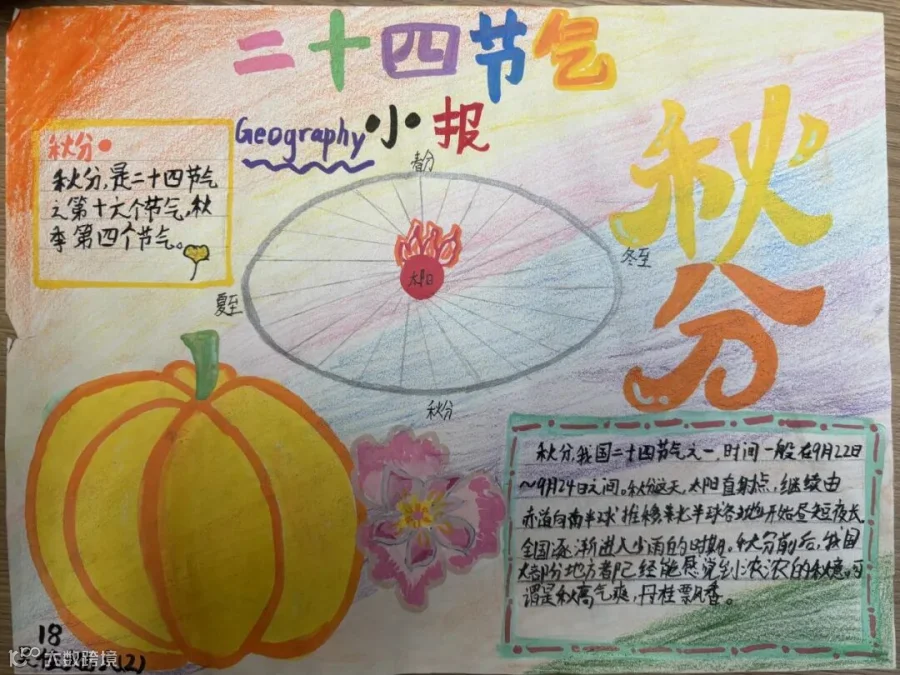 二十四节气
Geography小报
秋分
秋分，是二十四节气
之第十六个节气，秋
季第四个节气。
春分
太阳
冬至
夏至
秋分
秋分
秋分，我国二十四节气之一，时间一般在9月22日
～9月24日之间。秋分这天，太阳直射点，继续由
赤道向南半球推移，北半球各地开始昼短夜长
全国逐渐进入少雨的时期。秋分前后，我国
大部分地方都已经能感觉到浓浓的秋意。可
谓是秋高气爽，丹桂飘香。
18
(2)
大数跨境